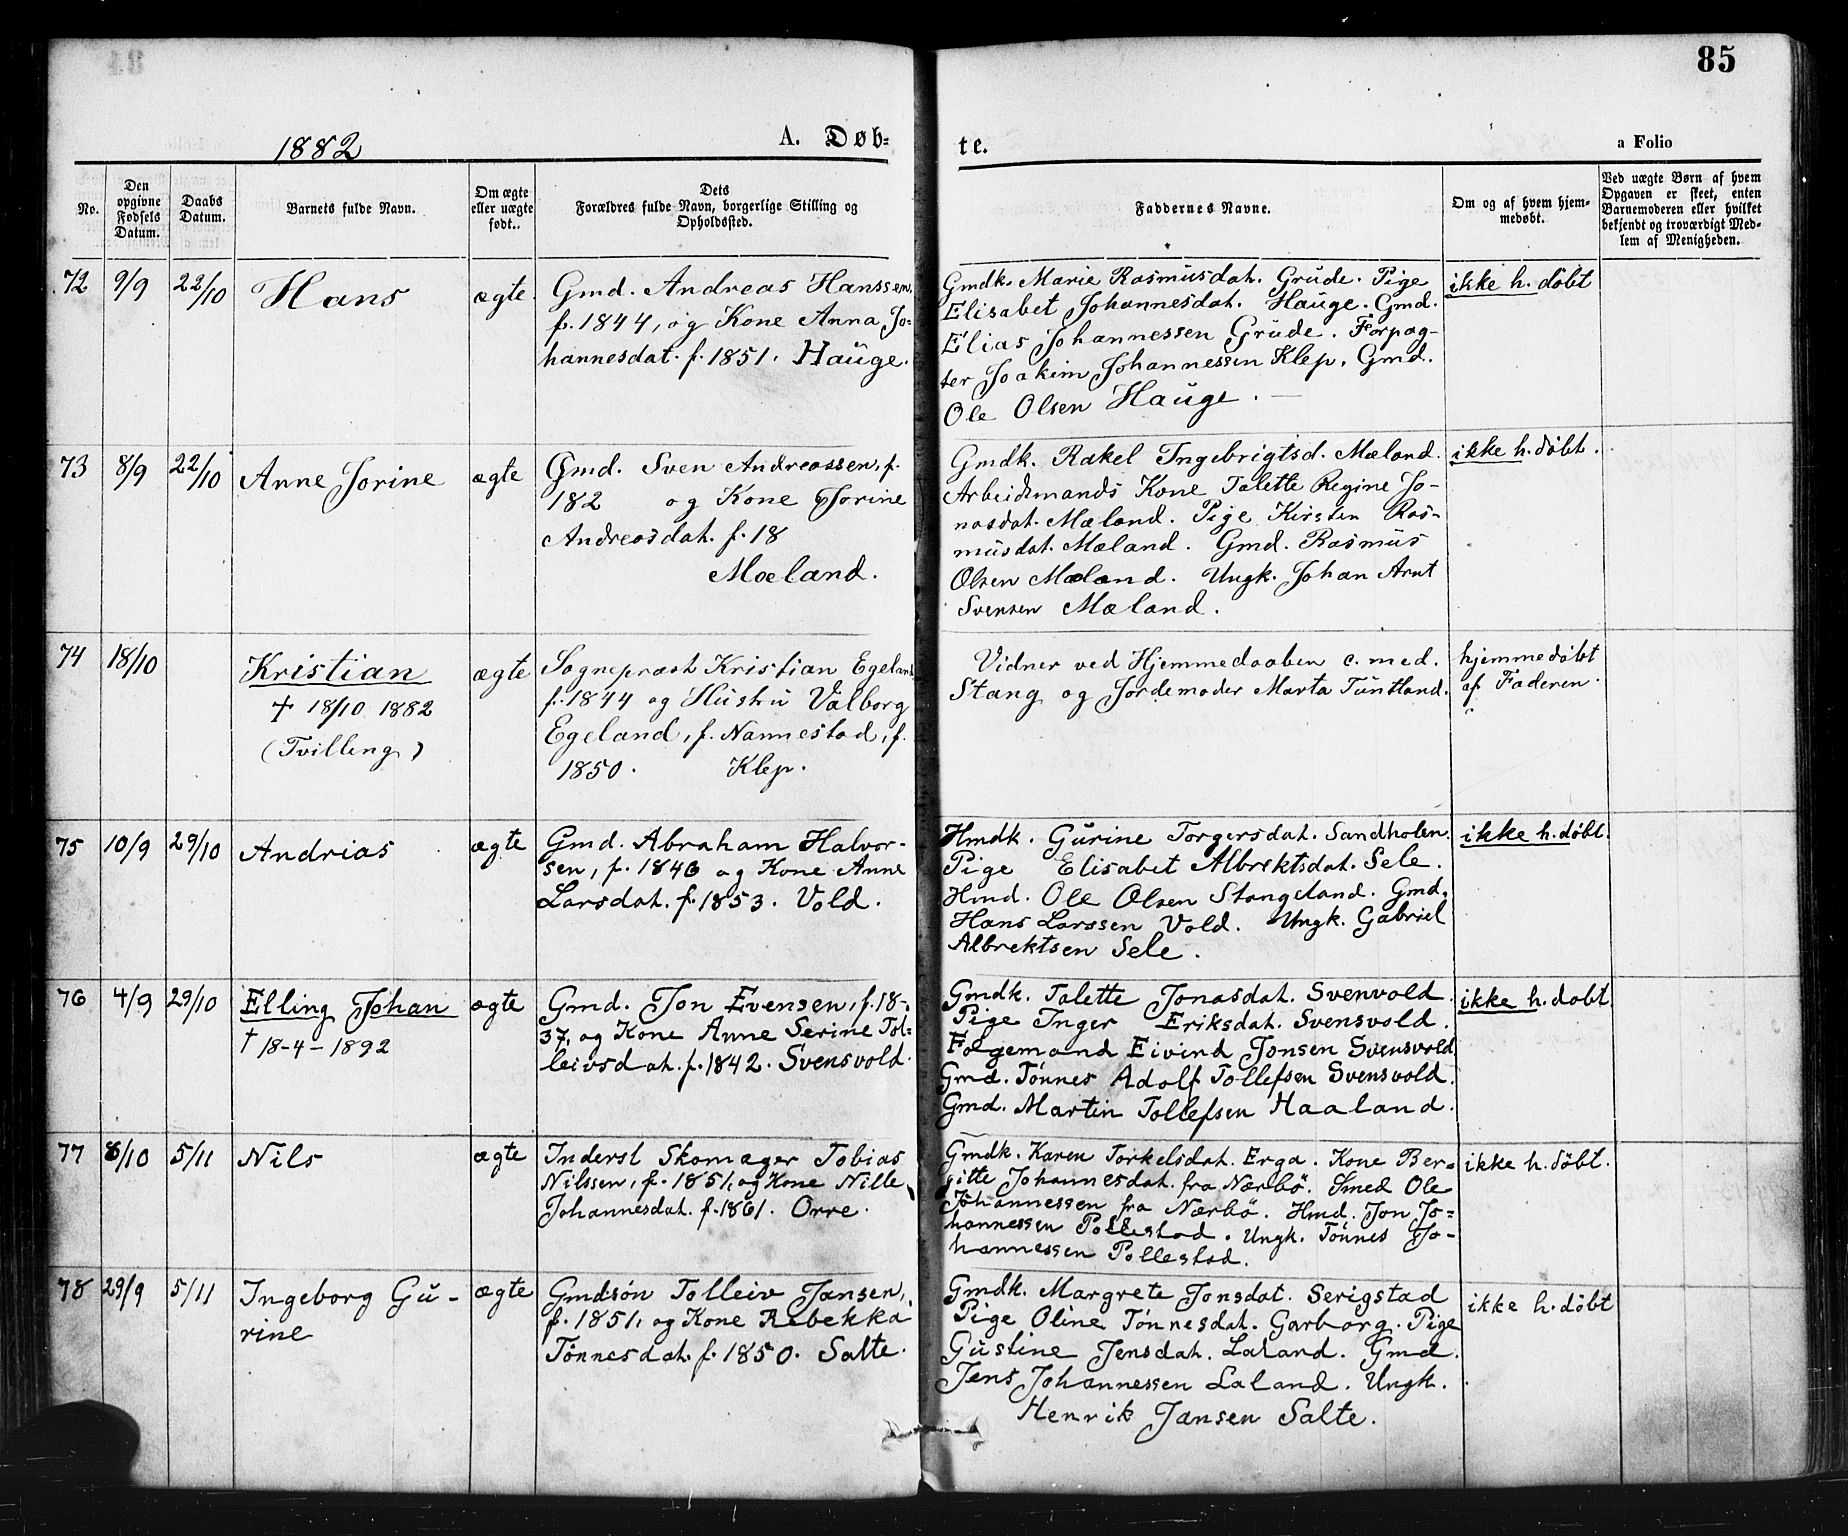 85
1882
A. Døb-
te.
a Folio
No.
Den opgivne Fødsels Datum.
Daabs Datum.
Barnets fulde Navn.
Om ægte eller uægte født..
Dets
Forældres fulde Navn, borgerlige Stilling og
Opholdssted.
Faddernes Navne.
Om og af hvem hjem-
medøbt.
Ved uægte Børn af hvem
Opgaven er skeet, enten
Barnemoderen eller hvilket
bekjendt og troværdigt Med-
lem af Menigheden.
72 9/9 22/10 Hans ægte.
Gmd. Andreas Hanssen,
f. 1844, og Kone Anna Jo-
hannesdat. f. 1851. Hauge.
Gmdk. Marie Rasmusdat. Grude. Pige
Elisabet Johannesdat. Hauge. Gmd.
Elias Johannessen Grude. Forpag-
ter Joakim Johannessen Klep. Gmd.
Ole Olsen Hauge.
ikke h. døbt
73 8/9 22/10 Anne Jorine ægte
Gmd. Sven Andreassen, f.
182 og Kone Jorine
Andreasdat. f. 18
Mæland.
Gmdk. Rakel Ingebrigtsd. Mæland.
Arbeidsmands Kone Talette Regine Jo-
nasdat. Mæland. Pige Kirsten Ras-
musdat. Mæland. Gmd. Rasmus
Olsen Mæland. Ungk. Johan Arnt
Svensen Mæland.
ikke h. døbt.
74 18/10 Kristian ægte
† 18/10 1882
(Tvilling)
Sognepræst Kristian Egeland
f. 1844 og Hustru Valborg
Egeland, f. Nannestad, f.
1850. Klep.
Vidner ved Hjemmedaaben c. med.
Stang og Jordemoder Marta Tuntland.
hjemmedøbt
af Faderen.
75 10/9 29/10 Andrias ægte
Gmd. Abraham Halvor-
sen, f. 1846 og Kone Anne
Larsdat. f. 1853. Vold.
Hmdk. Gurine Torgersdat. Sandholen.
Pige Elisabet Albrektsdat. Sele.
Hmd. Ole Olsen Stangeland. Gmd.
Hans Larssen Vold. Ungk. Gabriel
Albrektsen Sele.
ikke h. døbt.
76 4/9 29/10 Elling Johan ægte
† 18-4-1892
Gmd. Jon Evensen, f. 18-
37, og Kone Anne Serine Tol-
leivsdat. f. 1842. Svensvold.
Gmdk. Talette Jonasdat. Svenvold.
Pige Inger Eriksdat. Svensvold.
Følgemand Eivind Jonsen Svensvold
Gmd. Tønnes Adolf Tollefsen Svensvold.
Gmd. Martin Tollefsen Haaland.
ikke h. døbt.
77 8/10 5/11 Nils ægte
Inderst Skomager Tobias
Nilssen, f. 1851, og Kone Nille
Johannesdat. f. 1861. Orre.
Gmdk. Karen Torkelsdat. Erga. Kone Ber-
gitte Johannesdat. fra Nærbø. Smed Ole
Johannessen fra Nærbø. Hmd. Jon Jo-
hannessen Pollestad. Ungk. Tønnes Jo-
hannessen Pollestad.
ikke h. døbt.
78 29/9 5/11 Ingeborg Gu-
rine
ægte
Gmdsøn Tolleiv Jansen,
f. 1851, og Kone Rebekka
Tønnesdat. f. 1850. Salte.
Gmdk. Margrete Jonsdat. Serigstad
Pige Oline Tønnesdat. Garborg. Pige
Gustine Jensdat. Laland. Gmd.
Jens Johannessen Laland. Ungk.
Henrik Jansen Salte.
ikke h. døbt